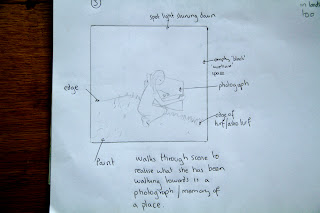 3
spot light shining down
empty 'black'
space
photograph
edge
edge of
turf/astro turf
paint
walks through scene to
realise what she has been
walking towards is a
photograph/memory of
a place.